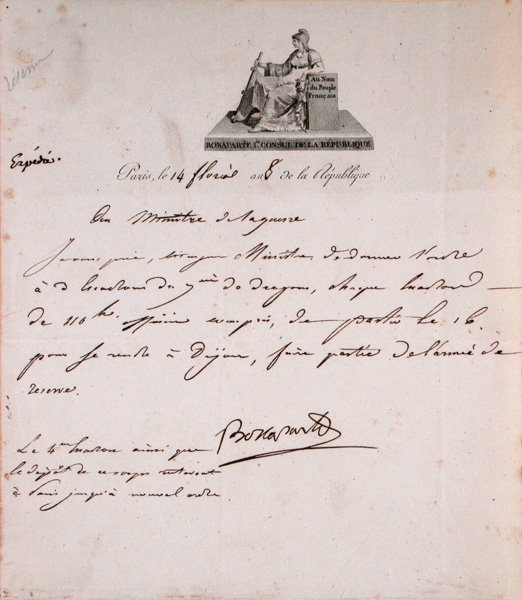 reserve
Au Nom
du Peuple
Français
BONAPARTE 1er CONSUL DE LA REPUBLIQUE
Expédié.
Paris, le 14 floréal an 8 de la République
Au Ministre de la guerre
Je vous prie, citoyen Ministre de donner l'ordre
à 3 escadrons du 7me de dragons, chaque escadron
de 110 h. officiers compris, de partir le 16
pour se rendre à Dijon, faire partie de l'armée de
reserve.
Bonaparte
Le 4me escadron ainsi que
le dépôt de ce corps resteront
à Paris jusqu'à nouvel ordre.